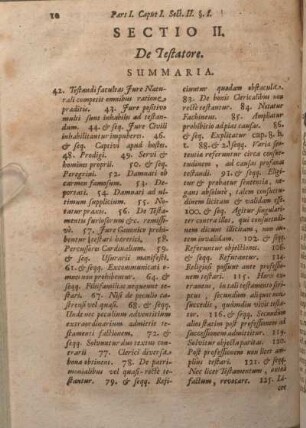 10 Pars I. Caput I. Sect. II. §. I.
SECTIO II.
De Testatore.
SUMMARIA.
42. Testandi facultas Jure Natu-
rali competit omnibus ratione
præditis. 43. Jure positivo
multi sunt inhabiles ad testan-
dum. 44. & seq. Jure Civili
inhabilitantur impuberes. 46.
& seq. Captivi apud hostes.
48. Prodigi. 49. Servi &
homines proprii. 50. & seq.
Peregrini. 52. Damnati ob
carmen famosum. 53. De-
portati. 54. Damnati ad ul-
timum supplicium. 55. No-
tatur praxis. 56. De Testa-
mento furiosorum &c. remissi-
vè. 57. Jure Canonico prohi-
bentur testari heretici. 58.
Percussores Cardinalium. 59.
& seq. Usurarii manifesti.
61. & seqq. Excommunicati o-
mnes non prohibentur. 64. &
seqq. Filiifamilias nequeunt te-
stari. 67. Nisi de peculio ca-
strensi vel quasi. 68. & seqq.
Unde nec peculium adventitium
extraordinarium admittit te-
stamenti factionem. 72. &
seqq. Solvuntur duo textus con-
trarii. 77. Clerici diversa bo-
na obtinent. 78. De patri-
monialibus vel quasi rectè te-
stantur. 79. & seqq. Reji-
ciuntur quædam obstacula.
83. De bonis Clericalibus non
rectè testantur. 84. Notatur
Fachineus. 85. Ampliatur
prohibitio ad pias causas. 86.
& seq. Explicatur cap.
88. & seqq. Varia sen-
tentia referuntur circa consue-
tudinem, ad causas profanas
testandi. 91. & seqq. Eli-
gitur & probatur sententia,
consuetu-
dinem licitam & validam esse.
100. & seq. Agitur singulari-
ter contra illos, qui consuetu-
dinem dicunt illicitam, non au-
tem invalidam. 102. &
seqq. Objectiones. 106.
& seqq. Refutantur. 114.
Religiosi possunt ante professio-
nem testari. 115.
testamentum in-
secundum
116. & seqq. Secundum
alios statim post professionem
successionem admittitur. 119.
Solvitur objecta paritas. 120.
Post professionem non licet am-
plius testari. 121. & seqq.
Nec licet Testamentum, antea
factum, revocare. 125.